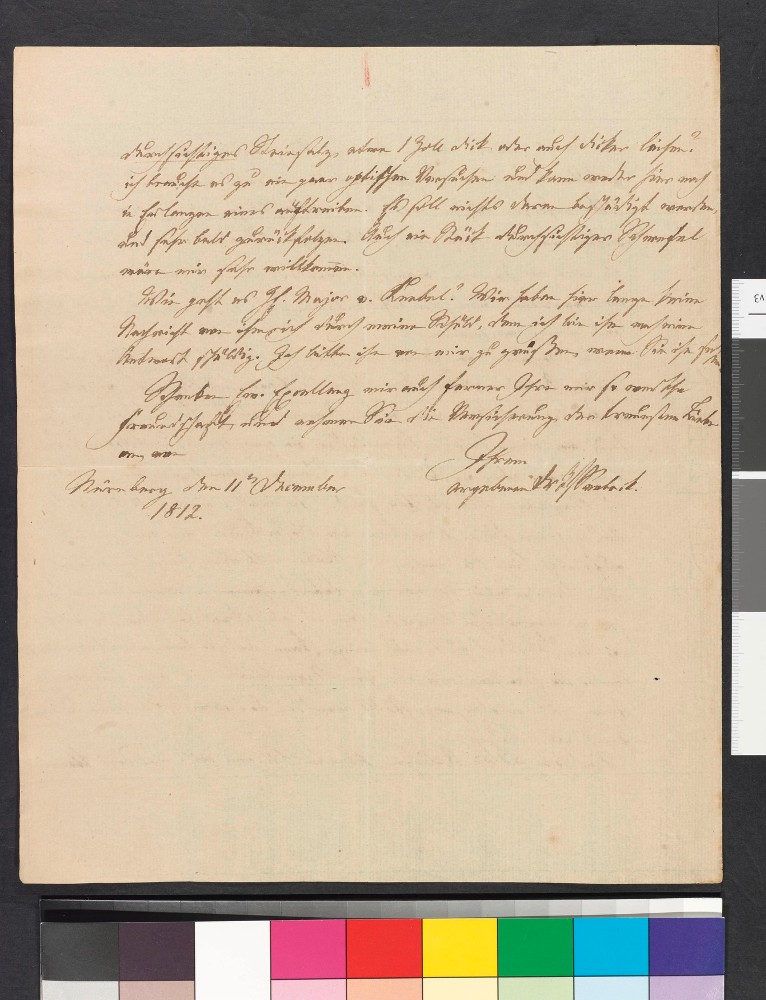 durchsichtiges Steinsalz, etwa 1 Zoll dick oder auch dicker leihen?
ich brauche es zu ein paar optischen Versuchen und kann weder hier noch
in Erlangen eines auftreiben. Es soll nichts daran beschädigt werden,
und sehr bald zurückfolgen. Auch ein Stück durchsichtiger Schwefel
wäre mir sehr willkommen.
Wie geht es H. Major v. Knebel? Wir haben hier lange keine
Nachricht von ihm; durch meine Schuld, denn ich bin ihm auf eine
Antwort schuldig. Ich bitte ihn von mir zu grüßen, wenn Sie ihn
Schenken Ew. Excellenz mir auch ferner Ihre mir so werthe
Freundschaft, und nehmen Sie die Versicherung der treuesten Liebe
an von
Ihrem
Nürnberg den 11n December
ergebenen Dr Seebeck.
1812.